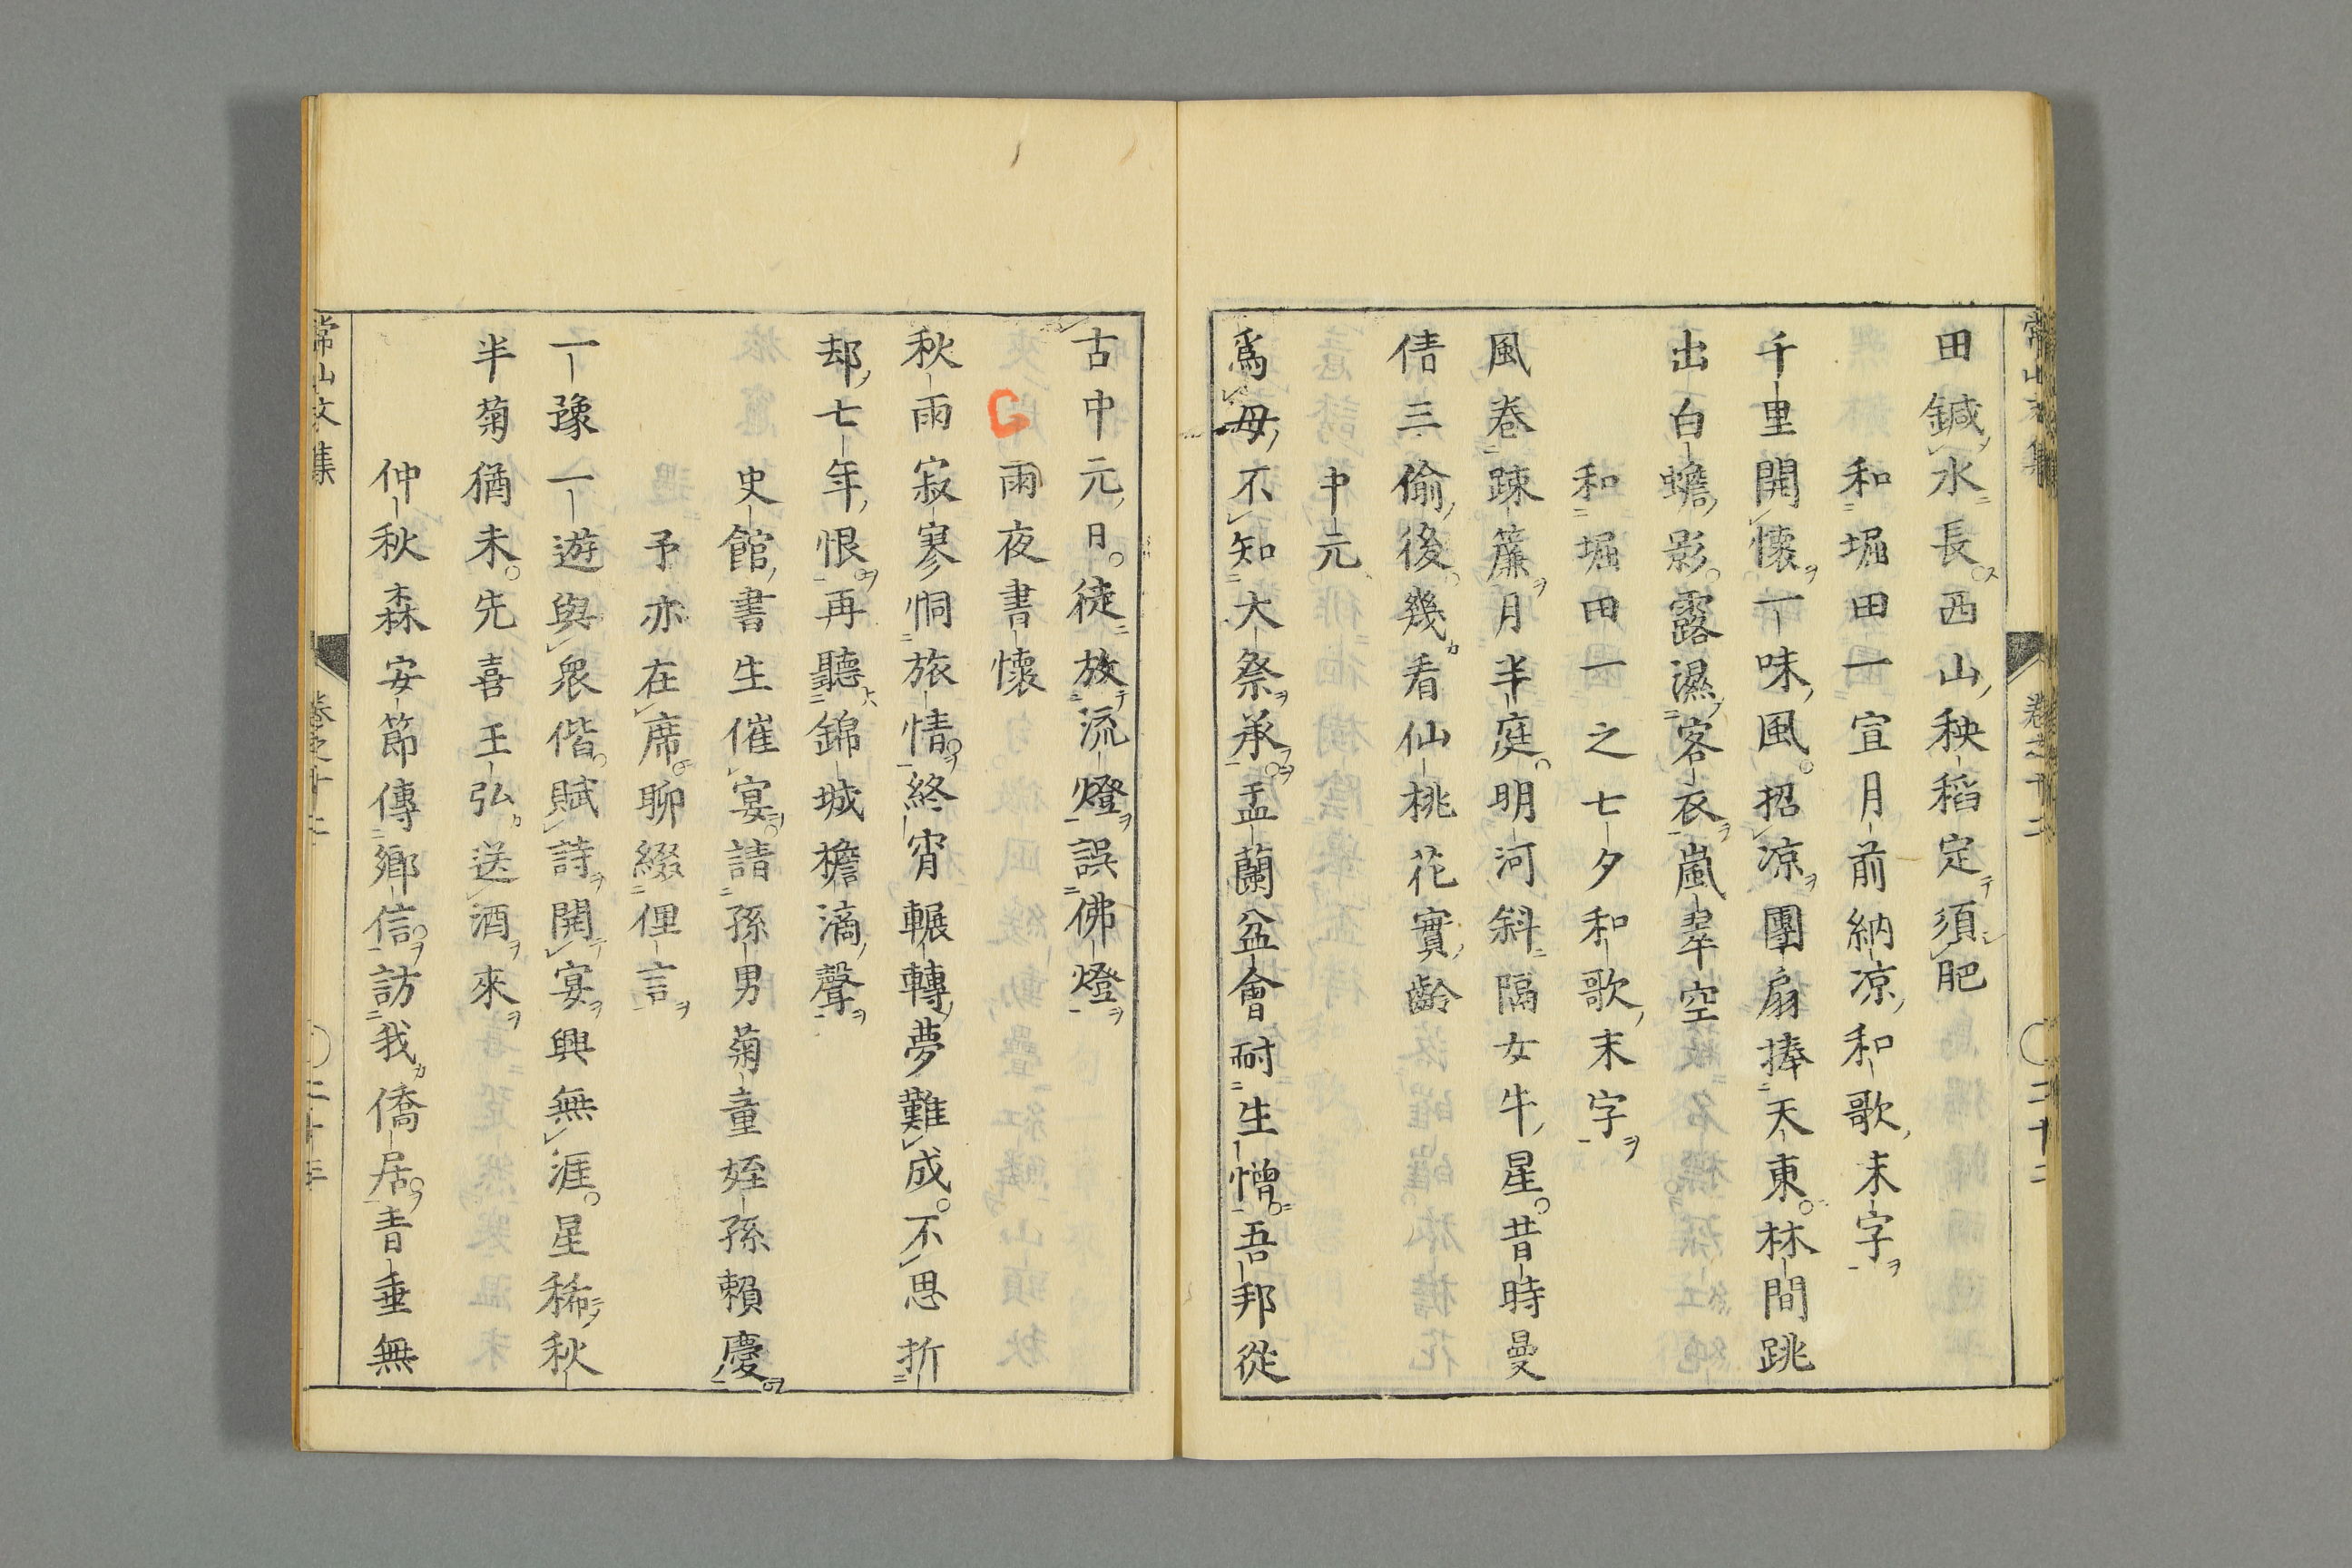 田鍼水長西山秧稻定須肥
和堀田一宣月前納凉和歌末字
千里開懷一味風招凉團扇捧天東林間跳
出白蟾影露濕客衣嵐羣空
和堀田一之七夕和歌末字
風卷踈簾月半庭明河斜隔女牛星昔時曼
倩三偷後幾看仙桃花實齡
中元
爲母不知大祭承盂蘭盆會耐生憎吾邦從
古中元日徒放流燈誤佛燈
雨夜書懷
秋雨寂寥恫旅情終宵輾轉夢難成不思折
却七年恨再聽錦城檐滴聲
史館書生催宴請孫男菊童姪孫賴慶
予亦在席聊綴俚言
一豫一遊與衆偕賦詩開宴興無涯星稀秋
半菊猶未先喜王弘送酒來
仲秋森安節傳鄉信訪我僑居青垂無
常山文集 卷之十二